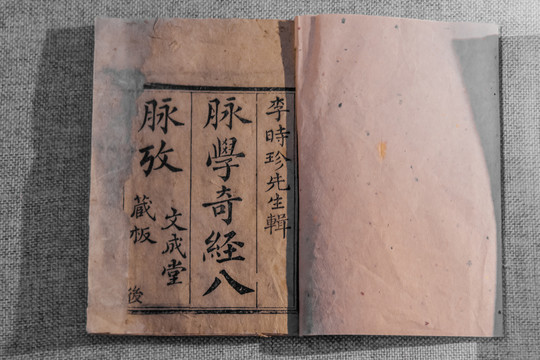 李時珍先生輯
脉學奇經八
脉攷
文成堂
藏板
後